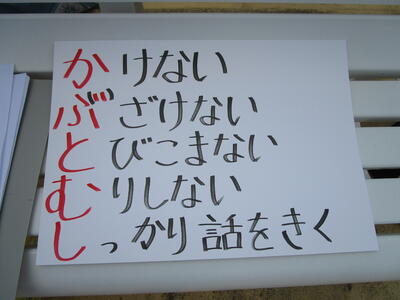 かけない
ふざけない
とびこまない
むりしない
しっかり話をきく